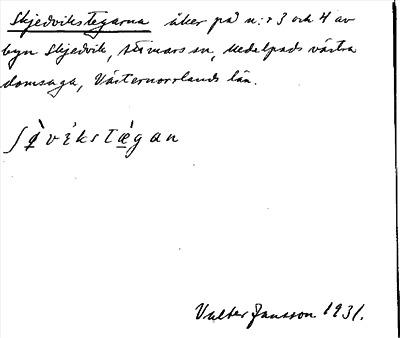 Skjedvikstegarna åker på n:r 3 och 4 av
byn Skjedvik, Stima sn, Medelpads västra
domsaga, Västernorrlands län.
ʃø̀vikstæ̀gan
Valter Jansson 1931.